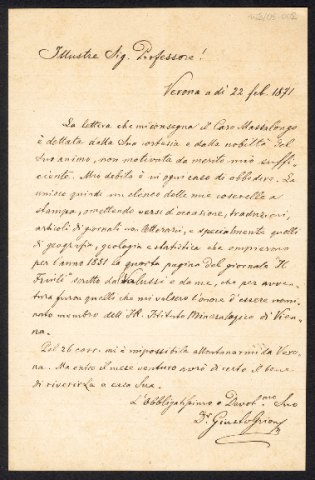 Illustre Sig. Professore!
Verona a dì 22 feb. 1871
La lettera che mi consegna il Caro Massalongo
è dettata dalla Sua cortesia e dalla nobiltà del
Suo animo, non motivata da merito mio suffi-
ciente. Mio debito è in ogni caso di obbedire. La
unisco quindi un elenco delle mie coserelle a
stampa, omettendo versi d'occasione, traduzioni,
articoli di giornali non letterarj, e specialmente quelli
di geografia, geologia e statistica che empierono
per l'anno 1851 la quarta pagina del giornale "Il
Friuli" scritto da Valussi e da me, che per avven-
tura furon quelle che mi valsero l'onore d'essere nomi-
nato membro dell' IR. Istituto Mineralogico di Vien-
na.
Pel 26 corr. mi è impossibile allontanarmi da Vero-
na. Ma entro il mese venturo avrò di certo il bene
di riverirLa a casa Sua.
L'Obbligatissimo e Devot.mo Suo
Dr. Giusto Grion